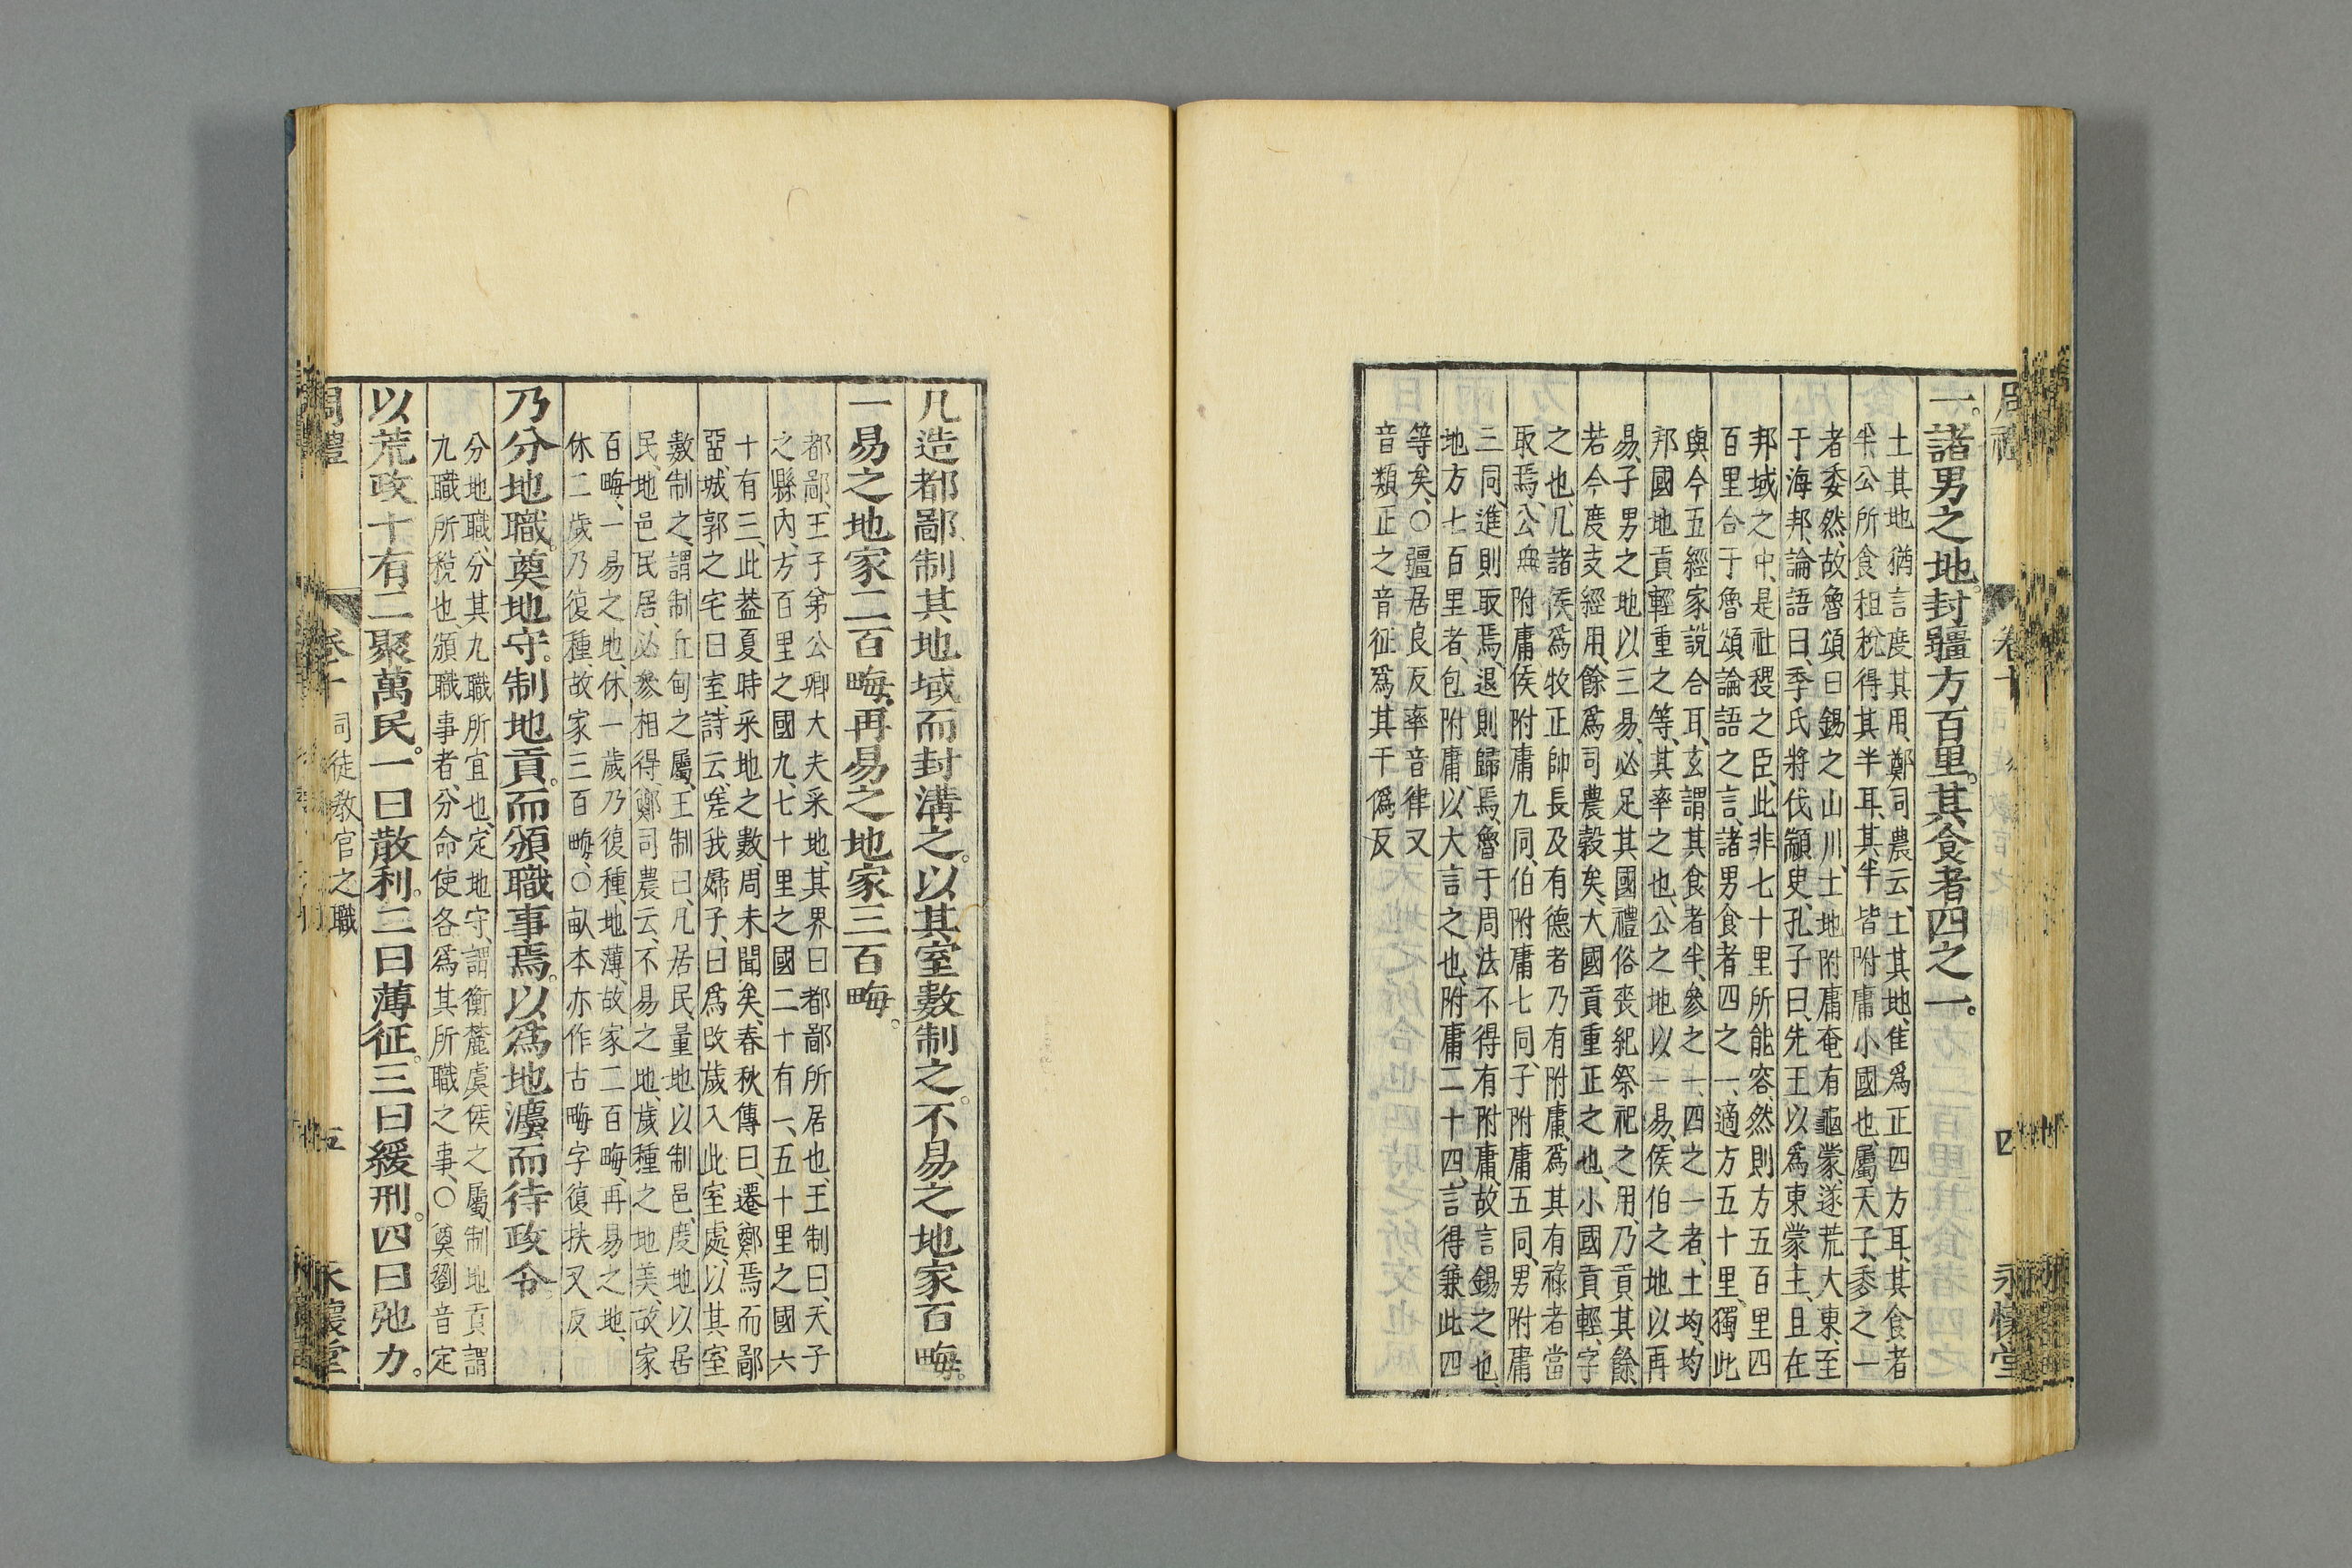 一。諸男之地。封疆方百里。其食者四之一。
土其地猶言度其用、鄭司農云、土其地、隹爲正四方耳、其食者
半、公所食租稅得其半耳、其半皆附庸小國也、屬天子、參之一
者委然、故魯頌曰、錫之山川、土地附庸、奄有龜蒙、遂荒大東、至
于海邦、論語曰、季氏將伐顓臾、孔子曰、先王以爲東蒙主、且在
邦域之中、是社稷之臣、此非七十里所能容、然則方五百里四
百里合于魯頌論語之言、諸男食者四之一、適方五十里、獨此
與今五經家說合耳、玄謂其食者半、參之一、四之一者、土均、均
邦國地貢輕重之等、其率之也、公之地以一易、侯伯之地以再
易、子男之地以三易、必足其國禮俗喪紀祭祀之用、乃貢其餘
若今度支經用、餘爲司農穀矣、大國貢重正之也、小國貢輕、字
之也、凡諸侯爲牧正帥長及有德者乃有附庸、爲其有祿者當
取焉、公無附庸、侯附庸九同、伯附庸七同、子附庸五同、男附庸
三同、進則取焉、退則歸焉、魯于周法不得有附庸、故言錫之也、
地方七百里者、包附庸、以大言之也、附庸二十四、言得兼此四
等矣、○疆居良反率音律又
音類正之音征爲其干僞反
四
永懷堂
凡造都鄙制其地域而封溝之。以其室數制之。不易之地家百畮。
一易之地家二百畮。再易之地家三百畮。
都鄙、王子弟公卿大夫采地、其界曰都鄙所居也、王制曰、天子
之縣內、方百里之國九、七十里之國二十有一、五十里之國六
十有三、此葢夏時采地之數、周未聞矣、春秋傳曰、遷鄭焉而鄙
畱、城郭之宅曰室、詩云、嗟我婦子、曰爲改歲入此室處、以其室
數制之、謂制丘甸之屬、王制曰、凡居民、量地以制邑、度地以居
民、地邑民居、必參相得、鄭司農云、不易之地、歲種之地美、故家
百畮、一易之地、休一歲乃復種、地薄、故家二百畮、再易之地、
休二歲乃復種、故家三百畮、○畝本亦作古畮字復扶又反
乃分地職。奠地守。制地貢。而頒職事焉。以爲地灋而待政令
分地職、分其九職所宜也、定地守、謂衡麓虞侯之屬、制地貢、謂
九職所稅也、頒職事者、分命使各爲其所職之事、○奠劉音定
以荒政十有二聚萬民。一曰散利。二曰薄征。三曰緩刑。四曰弛力。
周禮 卷十 司徒敎官之職 五 永懷堂